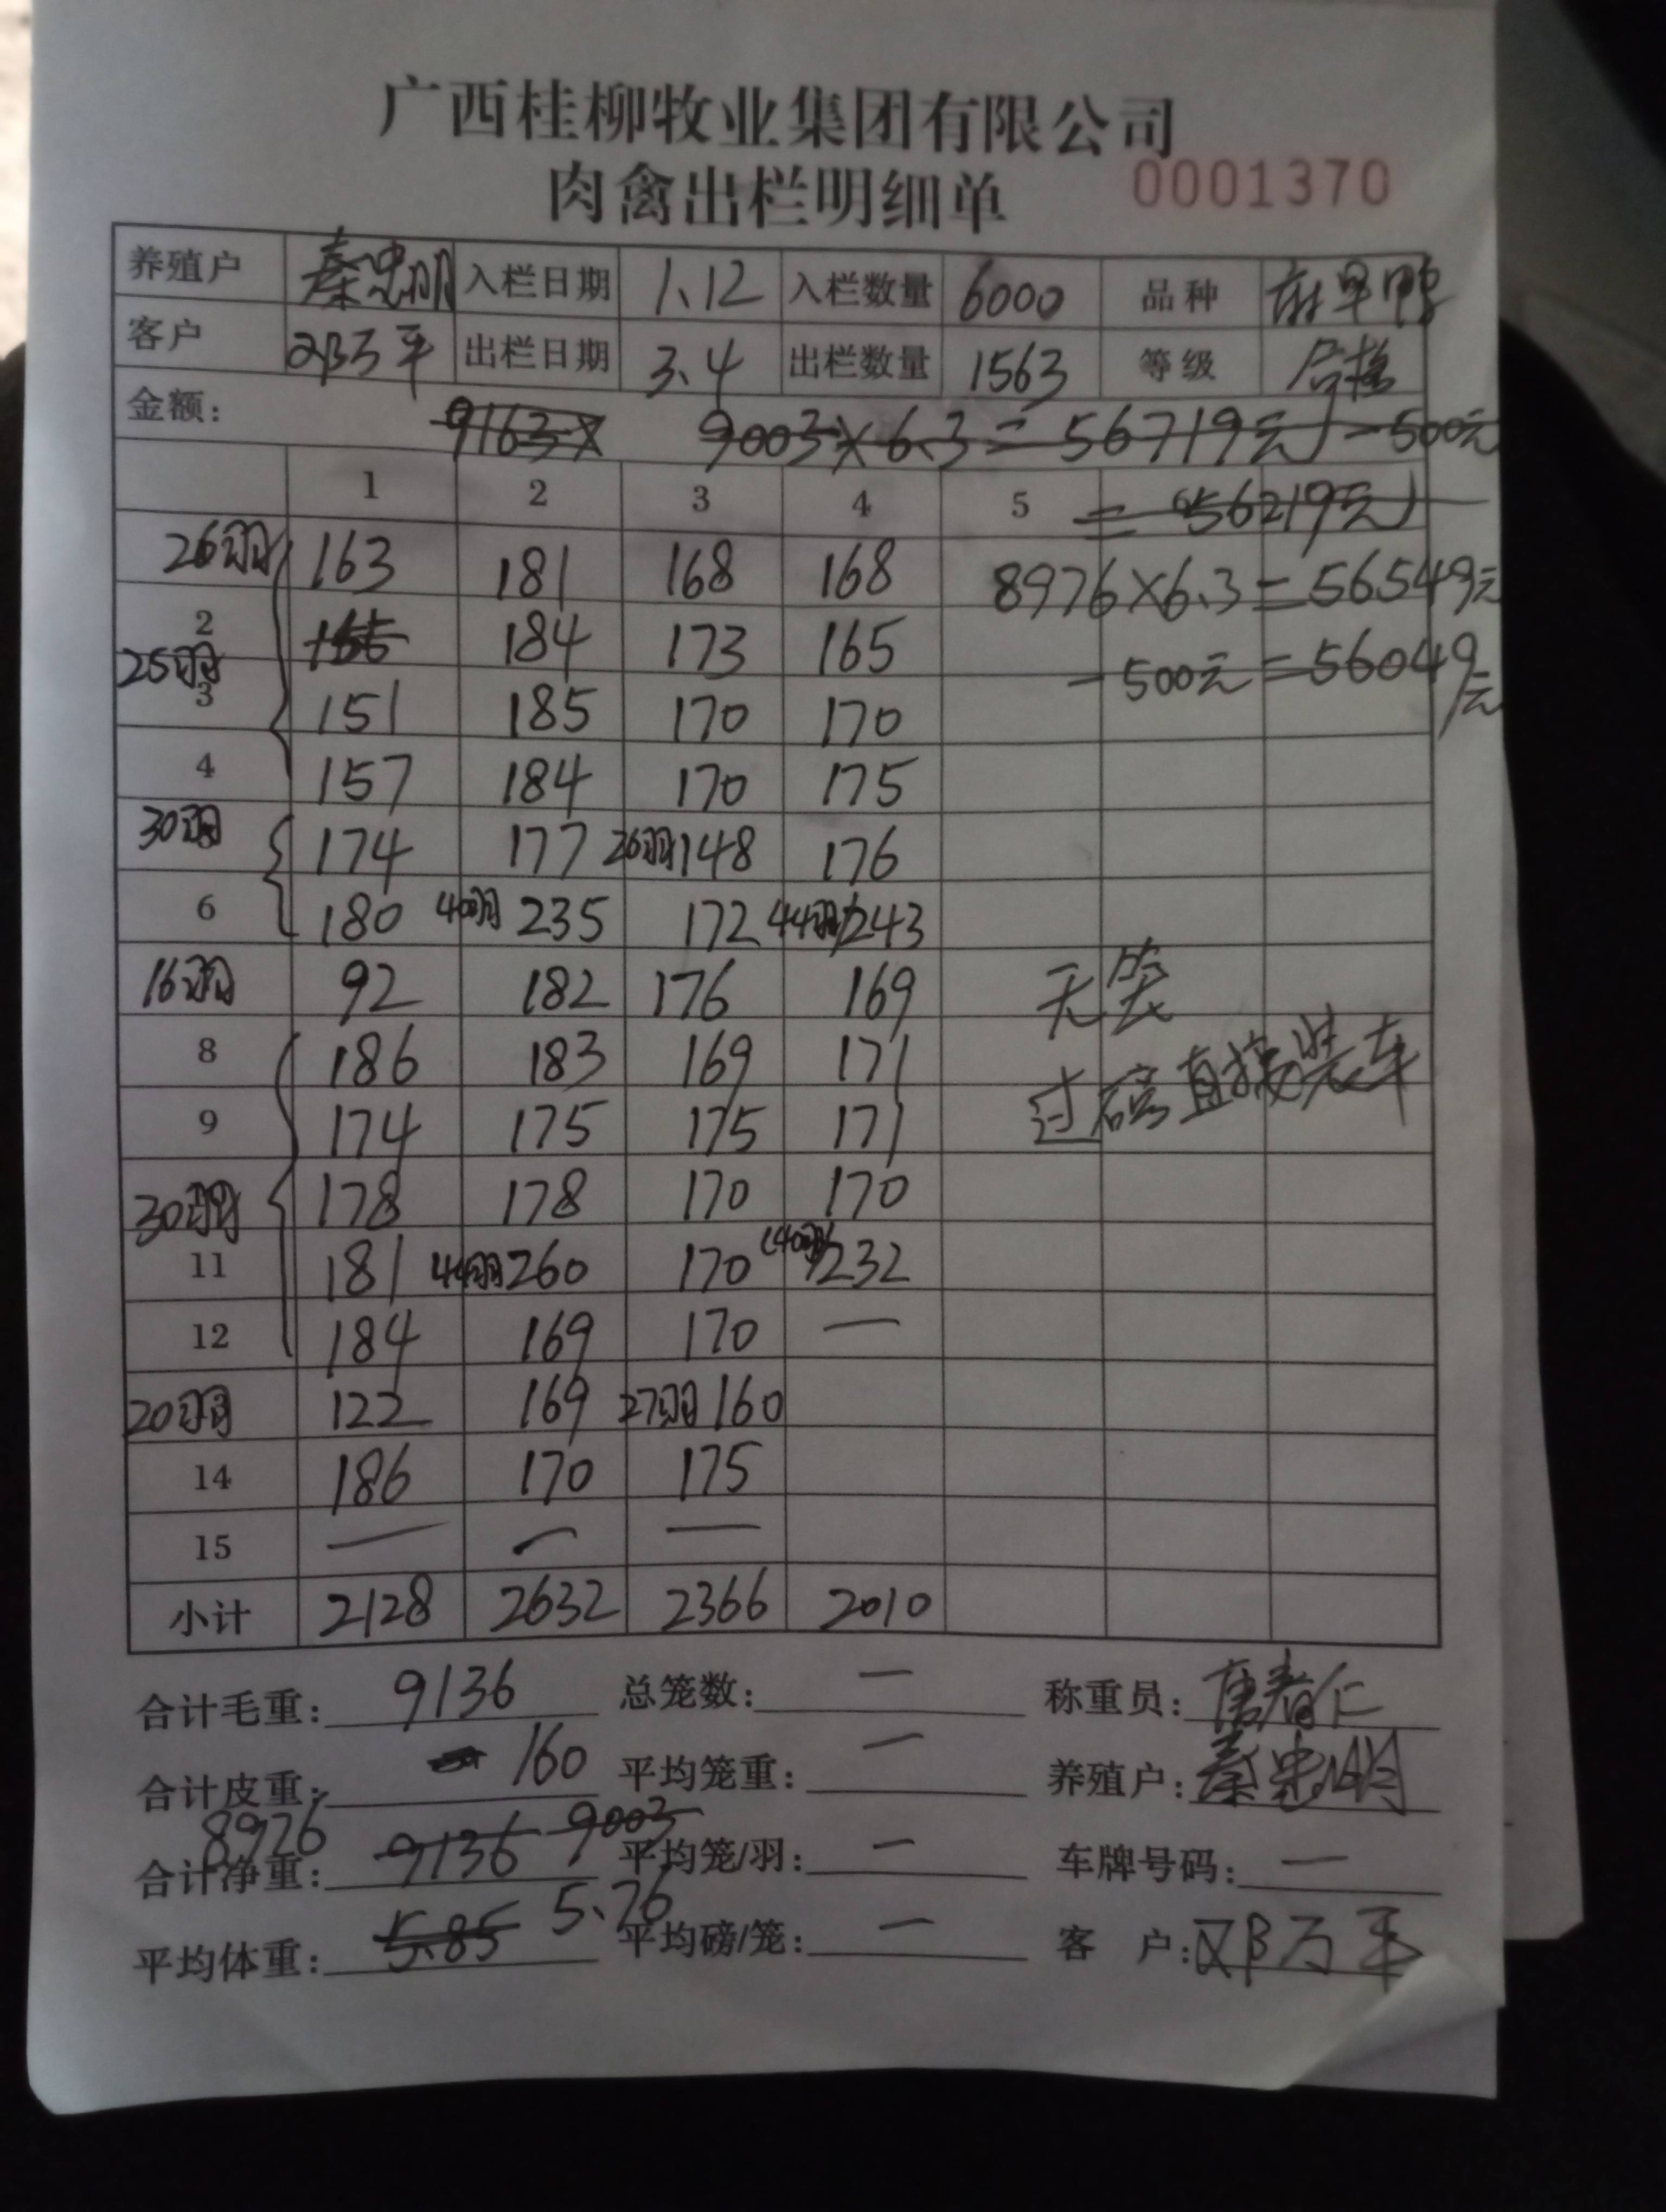 广西桂柳牧业集团有限公司
肉禽出栏明细单 0001370
养殖户 秦忠明 入栏日期 1、12 入栏数量 6000 品种 麻旱鸭
客户 邓万平 出栏日期 3、4 出栏数量 1563 等级 合格
金额： 9163× 9003×6.3=56719元-500元
1 2 3 4 5 6 =56219元
26羽 163 181 168 168 8976×6.3=56549元
2 184 173 165 -500元=56049元
25羽
3 151 185 170 170
4 157 184 170 175
30羽 174 177 26羽148 176
6 180 40羽 235 172 44羽243
16羽 92 182 176 169 无笼
8 186 183 169 171 过磅直接装车
9 174 175 175 171
30羽 178 178 170 170
11 181 44羽260 170 (40羽)232
12 184 169 170 —
20羽 122 169 27羽160
14 186 170 175
15 — — —
小计 2128 2632 2366 2010
合计毛重：9136 总笼数：— 称重员：唐春仁
合计皮重：160 平均笼重：— 养殖户：秦忠明
8976
合计净重：9136 9003 平均笼/羽：— 车牌号码：—
平均体重：5.85 5.76 平均磅/笼：— 客 户：邓万平